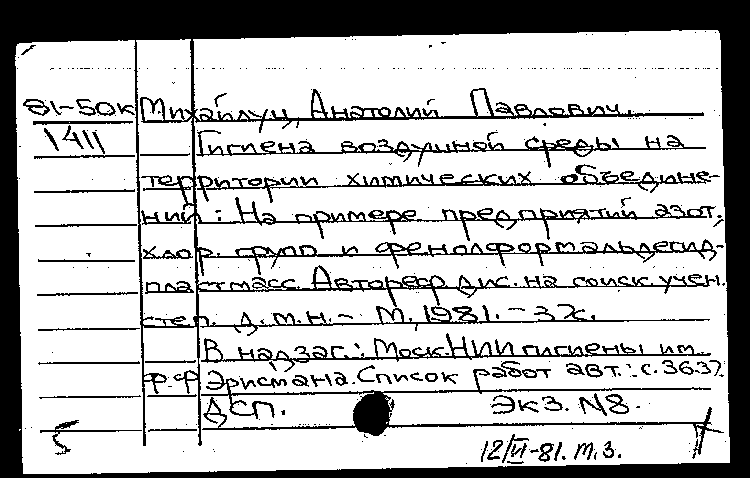 81-50к Михайлуц, Анатолий Павлович.
1411 Гигиена воздушной среды на
территории химических объедине-
ний: На примере предприятий азот,
хлор. групп и фенолформальдегид-
пластмасс. Автореф. дис. на соиск. учен.
степ. д.м.н. - М., 1981. - 37с.
В надзаг.: Моск. НИИ гигиены им.
Ф.Ф. Эрисмана. Список работ авт.: с. 36-37
ДСП. Экз. N8.
12/VI-81. т.з.